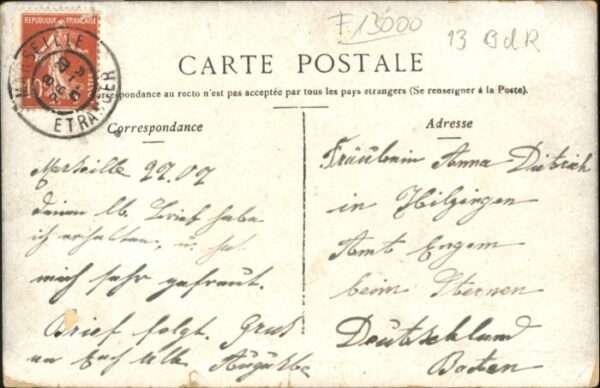 REPUBLIQUE FRANÇAISE
MARSEILLE
ETRANGER
F. 13000
13 BdR
CARTE POSTALE
Correspondance au recto n'est pas acceptée par tous les pays etrangers (Se renseigner à la Poste).
Correspondance
Marseille 22.07
deinen lb. Brief habe
ich erhalten, u. hat
mich sehr gefraut.
Brief folgt. Grus
an Euch alle Auguste
Adresse
Fräulein Anna Dietrich
in Hilzingen
Amt Engem
beim Sternen
Deutschland
Baden